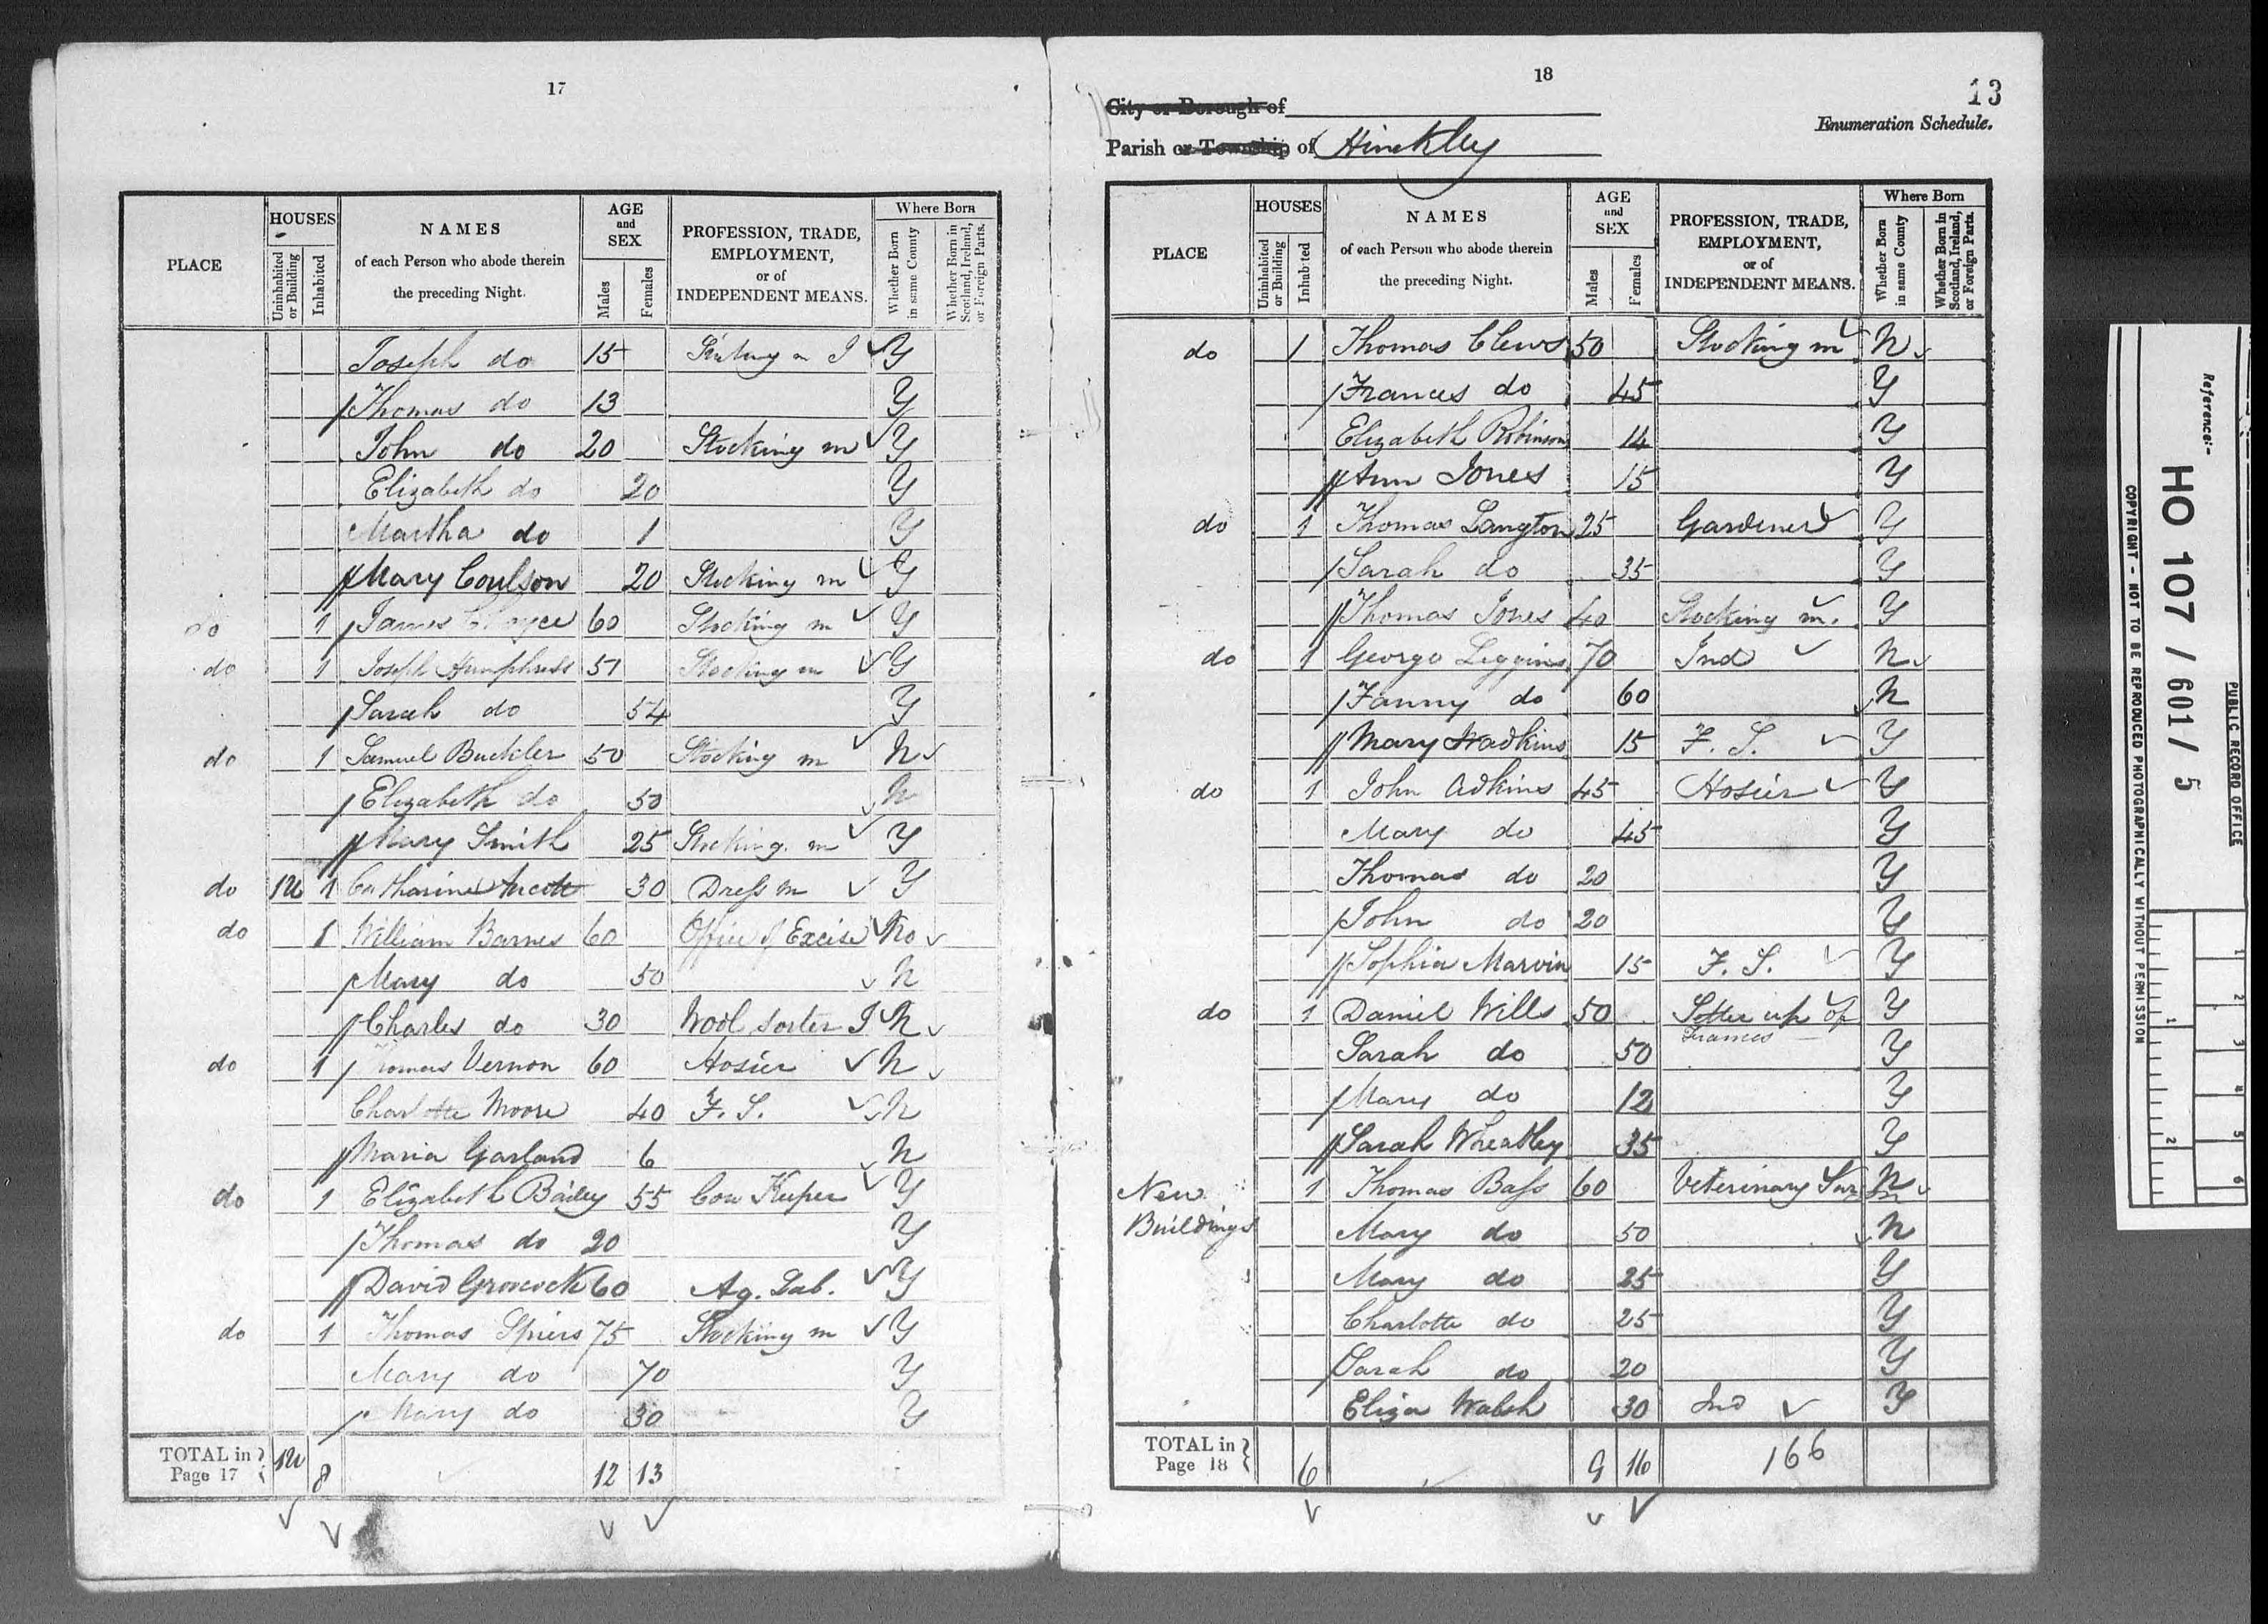 17
PLACE
HOUSES
Uninhabited or Building
Inhabited
NAMES
of each Person who abode therein
the preceding Night.
AGE
and
SEX
Males
Females
PROFESSION, TRADE,
EMPLOYMENT,
or of
INDEPENDENT MEANS.
Where Born
Whether Born in same County
Whether Born in Scotland, Ireland, or Foreign Parts.
Joseph do 15 J Y
Thomas do 13 Y
John do 20 Stocking m Y
Elizabeth do 20 Y
Martha do 1 Y
Mary Coulson 20 Stocking m Y
do 1 James 60 Stocking m Y
do 1 Joseph Humphress 51 Stocking m Y
Sarah do 54 Y
do 1 Samuel Buckler 50 Stocking m N
Elizabeth do 50 N
Mary Smith 25 Stocking m Y
do 1U 1 Catharine 30 Dress m Y
do 1 William Barnes 60 Officer of Excise No
Mary do 50 N
Charles do 30 Wool Sorter J N
do 1 Thomas Vernon 60 Hosier N
Charlotte Moore 40 F. S. N
Maria Garland 6 N
do 1 Elizabeth Bailey 55 Cow Keeper Y
Thomas do 20 Y
David Grococks 60 Ag. Lab. Y
do 1 Thomas Spiers 75 Stocking m Y
Mary do 70 Y
Mary do 30 Y
TOTAL in Page 17 1U 8 12 13
18
13
City or Borough of
Enumeration Schedule.
Parish or Township of Hinckley
PLACE
HOUSES
Uninhabited or Building
Inhabited
NAMES
of each Person who abode therein
the preceding Night.
AGE
and
SEX
Males
Females
PROFESSION, TRADE,
EMPLOYMENT,
or of
INDEPENDENT MEANS.
Where Born
Whether Born in same County
Whether Born in Scotland, Ireland, or Foreign Parts.
do 1 Thomas Clews 50 Stocking m N
Frances do 45 Y
Elizabeth Robinson 14 Y
Ann Jones 15 Y
do 1 Thomas Langton 25 Gardener Y
Sarah do 35 Y
Thomas Jones 40 Stocking m. Y
do 1 George Liggins 70 Ind N
Fanny do 60 N
Mary Wadkins 15 F. S. Y
do 1 John Adkins 45 Hosier Y
Mary do 45 Y
Thomas do 20 Y
John do 20 Y
Sophia Marvin 15 F. S. Y
do 1 Daniel Wills 50 Setter up of Y
Frames
Sarah do 50 Y
Mary do 12 Y
Sarah Wheatley 35 Y
New 1 Thomas Bass 60 Veterinary Sur N
Buildings Mary do 50 N
Mary do 25 Y
Charlotte do 25 Y
Sarah do 20 Y
Eliza Walsh 30 Ind Y
TOTAL in Page 18 6 9 16 166
Reference:-
HO 107 / 601 / 5
PUBLIC RECORD OFFICE
COPYRIGHT - NOT TO BE REPRODUCED PHOTOGRAPHICALLY WITHOUT PERMISSION
1
2
3
4
5
6
1
2